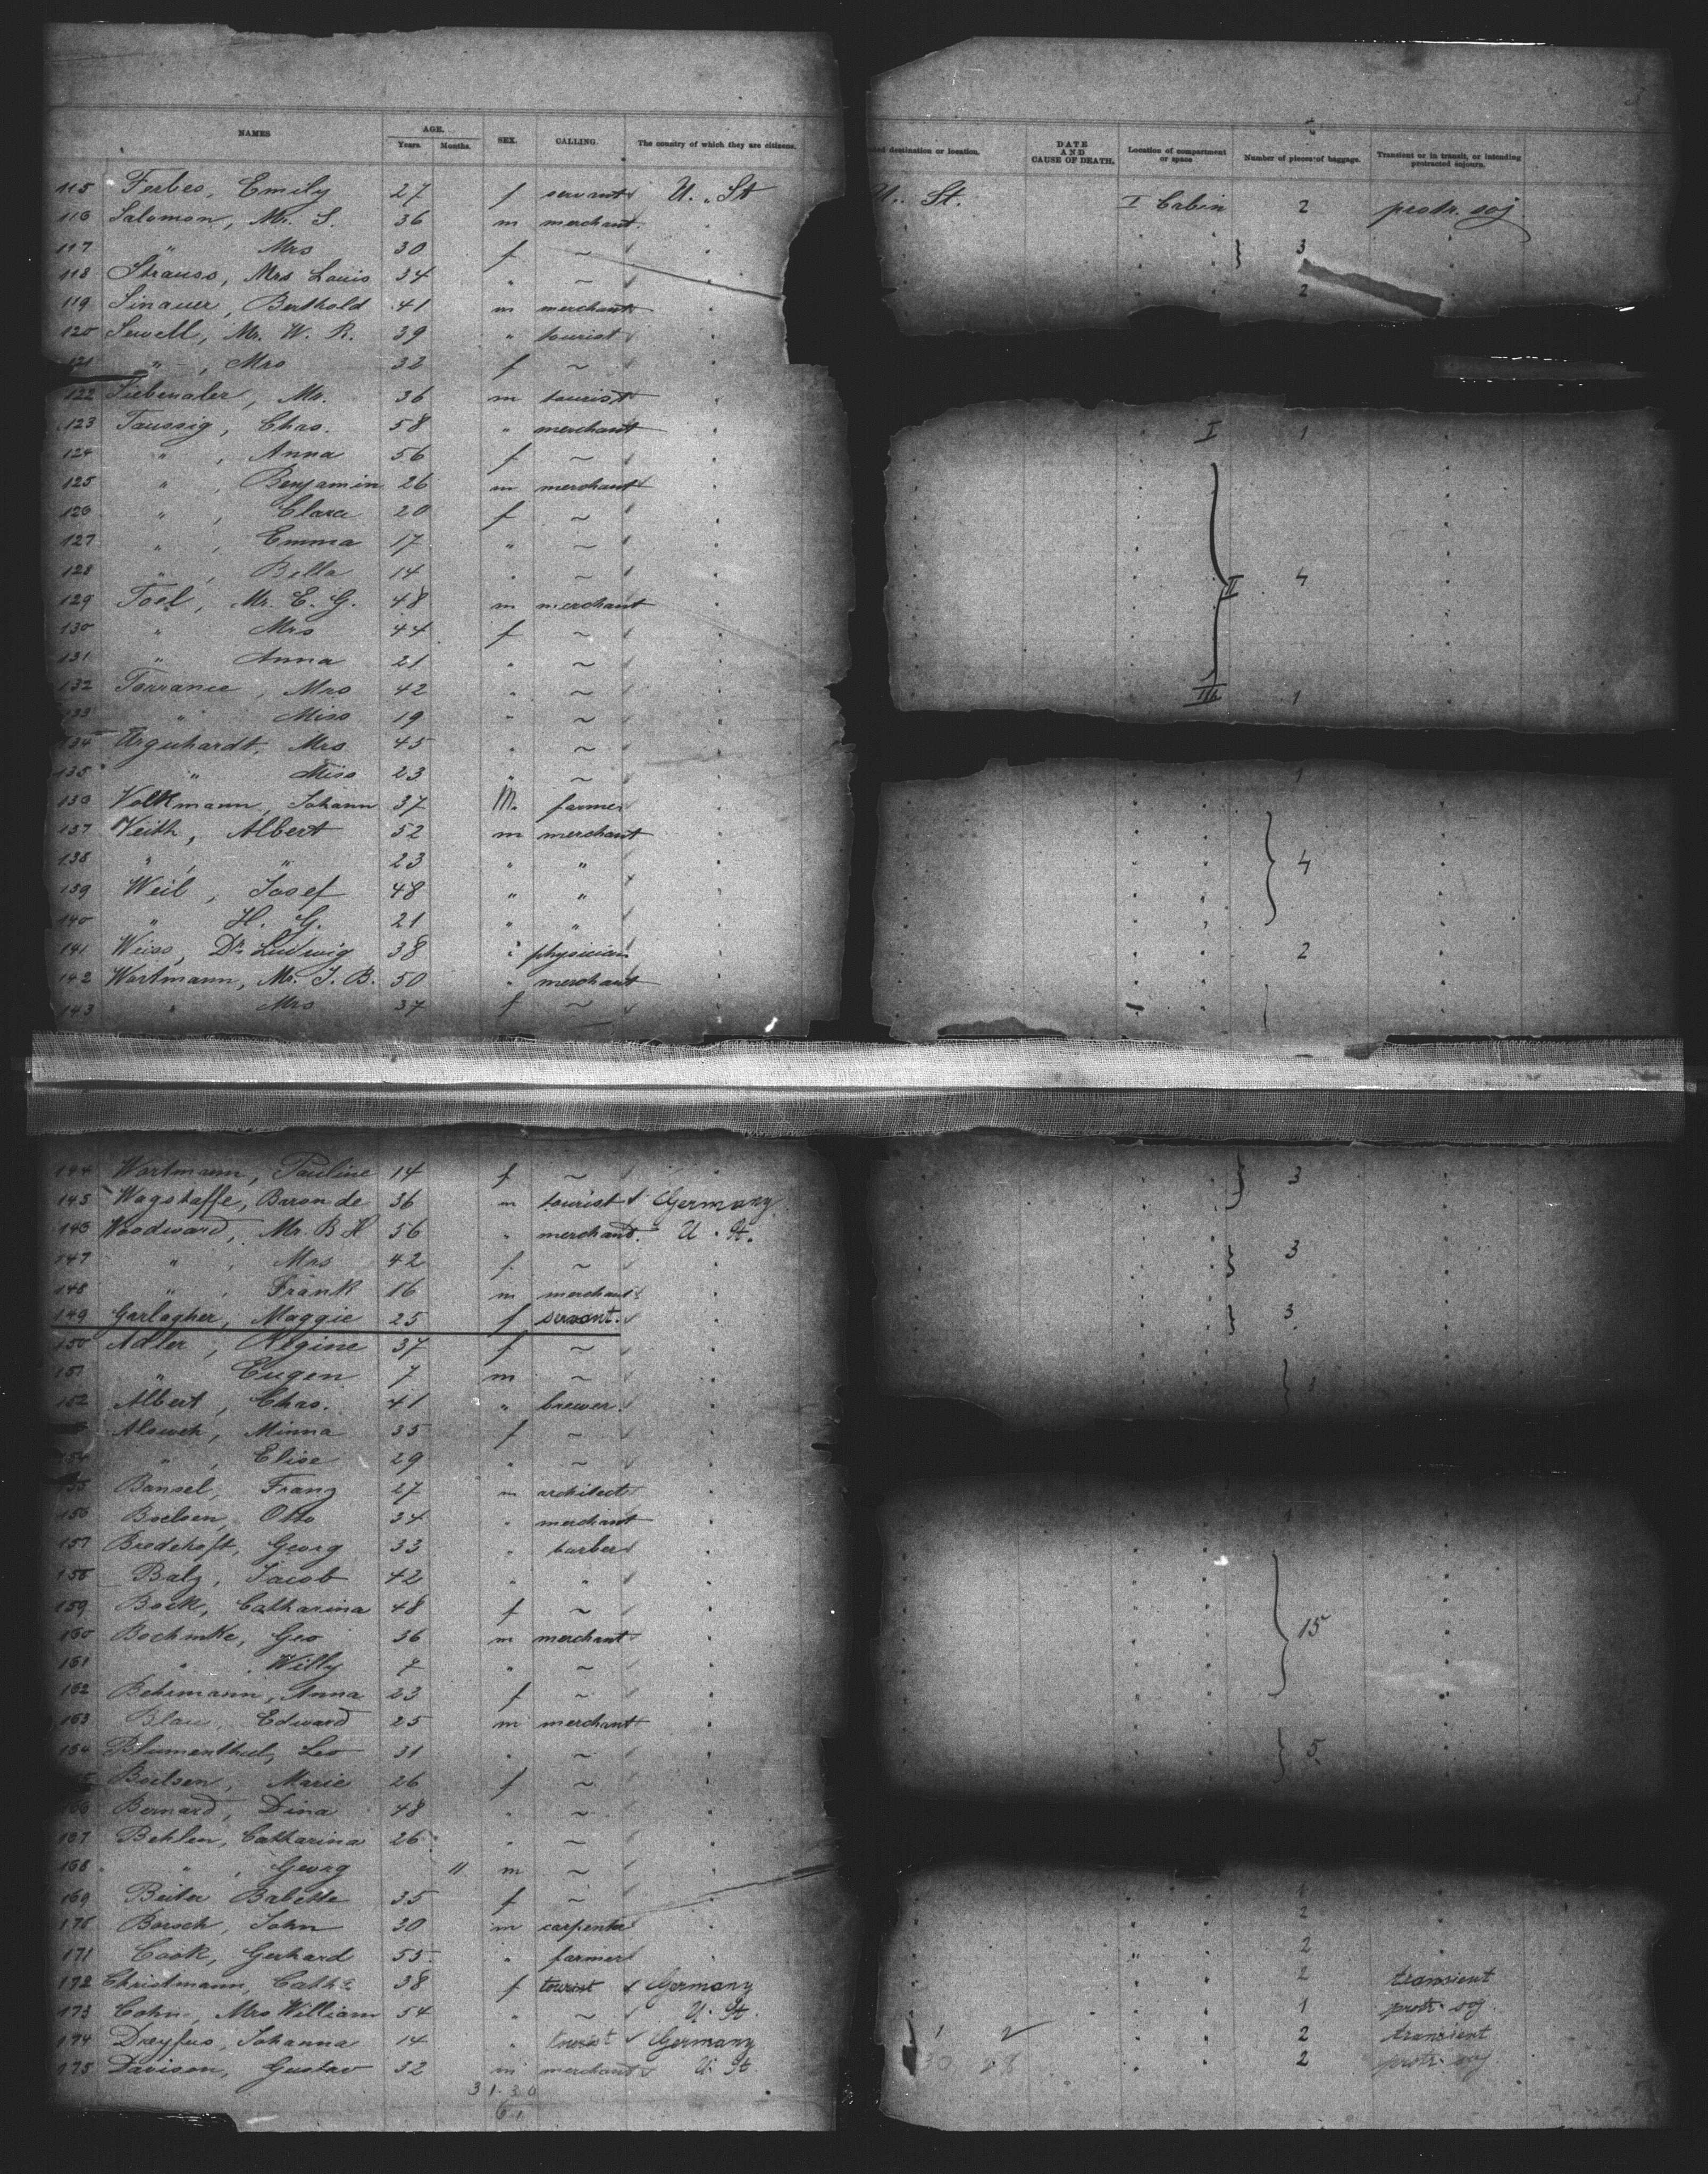 NAMES AGE. Years. Months. SEX. CALLING. The country of which they are citizens.
destination or location. DATE AND CAUSE OF DEATH. Location of compartment or space Number of pieces of baggage. Transient or in transit, or intending protracted sojourn.
115 Forbes, Emily 27 f servant U. St U. St. I Cabin 2 protr. soj
116 Salomon, Mr. S. 36 m merchant
117 " Mrs 30 f ~ 3
118 Strauss, Mrs Louis 34 " ~ 2
119 Sinauer, Berthold 41 m merchant
120 Sewell, Mr. W. R. 39 " tourist
121 ", Mrs 32 f ~
122 Siebenaler, Mr. 36 m tourist
123 Taussig, Chas. 58 " merchant I 1
124 ", Anna 56 f ~
125 ", Benjamin 26 m merchant
126 ", Clara 20 f ~
127 ", Emma 17 " ~
128 ", Bella 14 " ~ II 4
129 Toel, Mr. E. G. 48 m merchant
130 " Mrs 44 f ~
131 " Anna 21 " ~
132 Torrance, Mrs 42 " ~ 1
133 " Miss 19 " ~
134 Urguhardt, Mrs 45 " ~
135 " Miss 23 " ~ 1
136 Volkmann, Johann 37 M. farmer
137 Veith, Albert 52 m merchant
138 ", " 23 " " 4
139 Weil, Josef 48 " "
140 " H. G. 21 " "
141 Weiss, Dr. Ludwig 38 " physician 2
142 Wortmann, Mr. J. B. 50 " merchant
143 " Mrs 37 f ~
144 Wortmann, Pauline 14 f ~ 3
145 Wagstaffe, Baron de 36 m tourist Germany
146 Woodward, Mr. B H 56 " merchand. U. St. 3
147 ", Mrs 42 f ~
148 ", Frank 16 m merchant 3
149 Garlagher, Maggie 25 f servant.
150 Adler, Regine 37 f ~
151 " Eugen 7 m ~
152 Albert, Chas. 41 " brewer
Alsweh, Minna 35 f ~
154 ", Elise 29 " ~
155 Bansel, Franz 27 m architect
156 Boelsen, Otto 34 " merchant 1
157 Bredehoft, Georg 33 " barber
158 Balz, Jacob 42 " "
159 Bock, Catharina 48 f ~
160 Bochmke, Geo 36 m merchant 15
161 ", Willy 7 " ~
162 Behrmann, Anna 23 f ~
163 Blau, Edward 25 m merchant
164 Blumenthal, Leo 31 " ~ 5.
Boelsen, Marie 26 f ~
166 Bernard, Dina 48 " ~
167 Behlen, Catharina 26 " ~
168 ", Georg 11 m ~
169 Beiter Babette 35 f ~
170 Borsch, John 30 m carpenter 2
171 Cook, Gerhard 55 " farmer 2
172 Christmann, Cath. 38 f tourist Germany 2 transient
173 Cohn, Mrs William 54 " ~ U. St. 1 protr. soj
174 Dreyfus, Johanna 14 " tourist Germany 1 2 2 transient
175 Davison, Gustav 32 m merchant U. St. 30 28 2 protr. soj
31.30
61